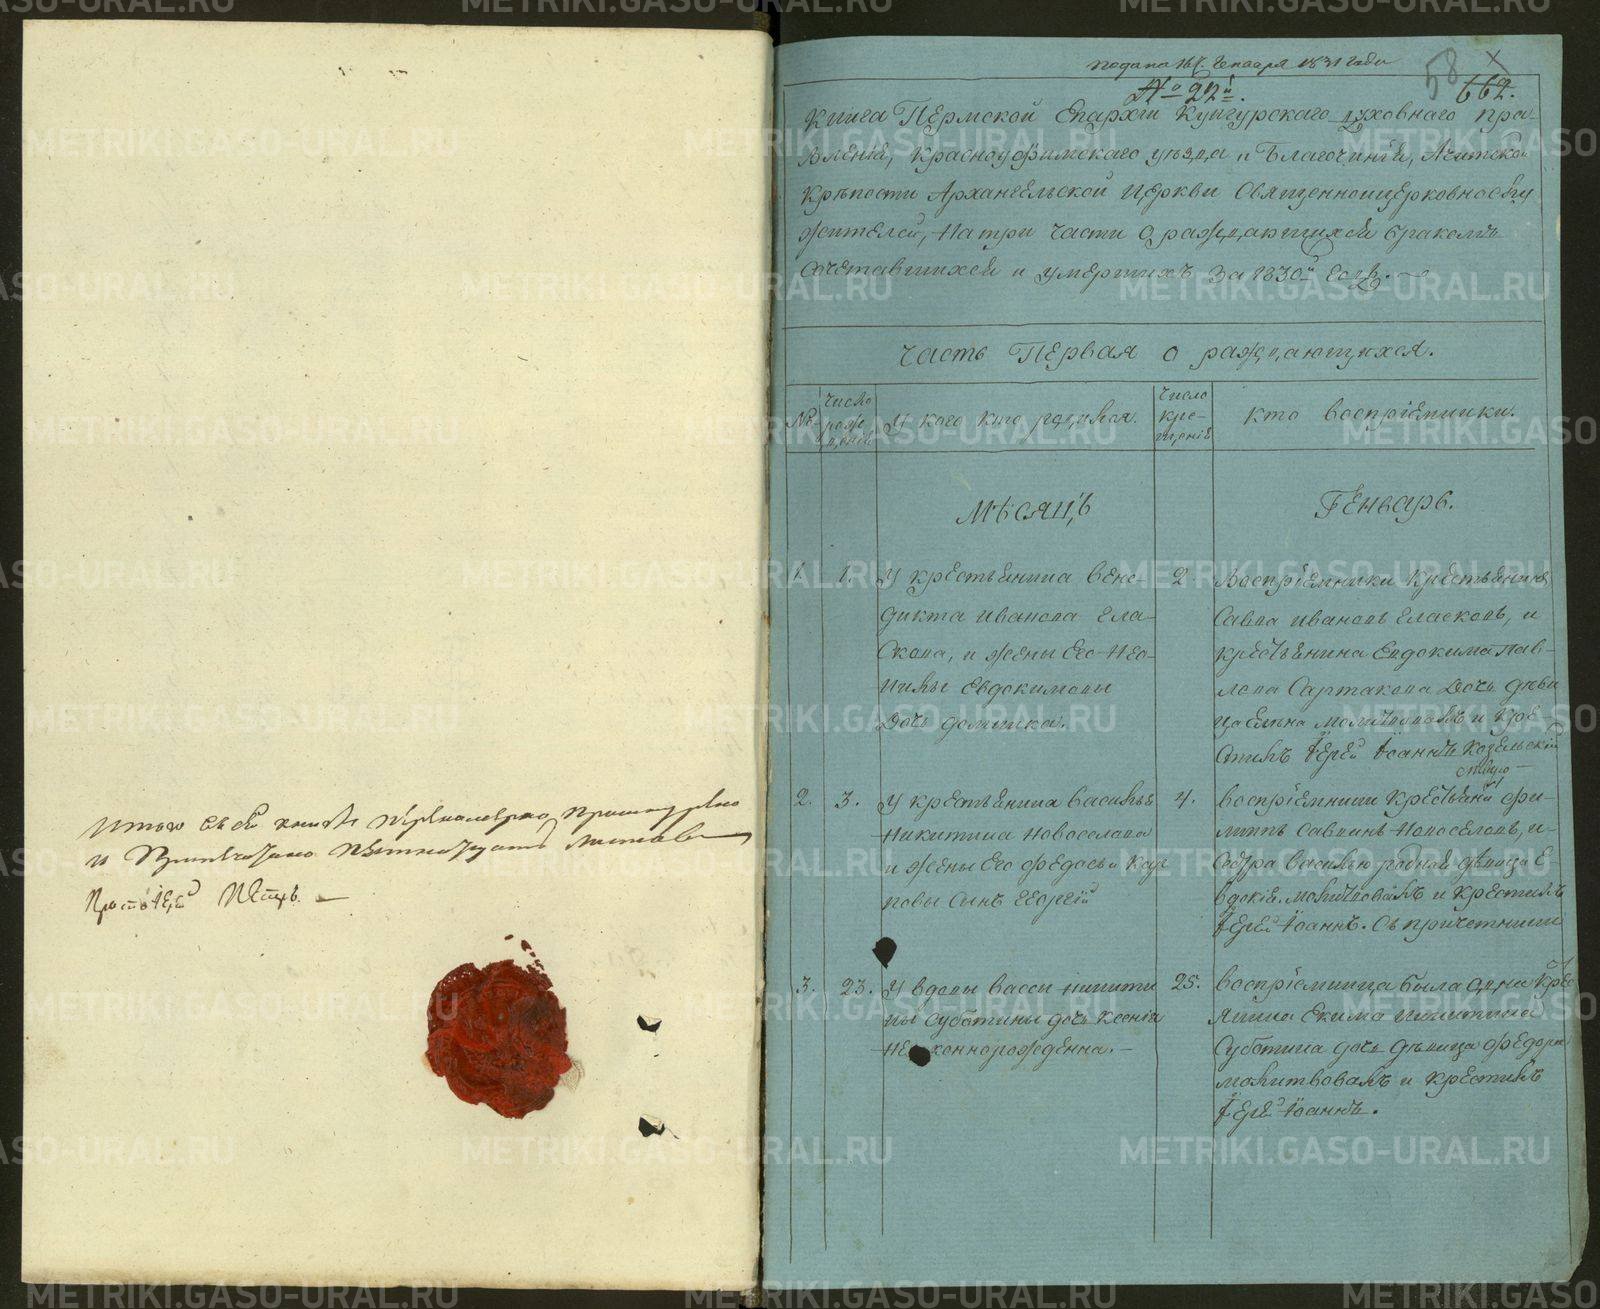 Итого въ сей книгѣ перенумеровано прошнуровано
и припечатано пятнадцать листовъ
Протоіерей Петръ
подана 16 Генваря 1831 года
58
№ 22й.
662.
Книга Пермской Епархіи Кунгурскаго духовнаго пра-
вленія, Красноуфимскаго уѣзда и Благочинія, Ачитской
Крѣпости Архангельской Церкви Священноцерковнослу
жителей, на три части о раждающихся бракомъ
сочетавшихся и умершихъ за 1830й годъ.
Часть Первая о раждающихся.
№
Число рож денія
У кого кто родился.
Число кре- щенія
Кто воспріемники.
Мѣсяцъ
Генварь.
1.
1.
У крестьянина Вене-
дикта Иванова Гла-
скова, и жены его Нео-
нилы Евдокимовы
дочь Домника.
2
Воспріемники Крестьянинъ
Савва Ивановъ Гласковъ, и
крестьянина Евдокима Пав-
лова Сартакова дочь дѣви
ца Елена молитвовалъ и кре-
стилъ Іерей Іоаннъ Козельскій
2.
3.
У крестьянина Василья
Никитина Новоселова
и жены его Федосьи Кар
повы сынъ Георгій
4.
воспріемники Крестьянинъ Фи-
липъ Саввинъ Новоселовъ, и
Сестра Василью родной дѣвица Е-
вдокія. молитвовалъ и крестилъ
Іерей Іоаннъ. Съ причетники
3.
23.
У вдовы Вассы Никити
ны Субботины дочь Ксенія
незаконнорожденна.
25.
воспріемница была одна Крес
янина Екима Никитина
Субботина дочь дѣвица Федора
молитвовалъ и крестилъ
Іерей Іоаннъ.
METRIKI.GASO-URAL.RU